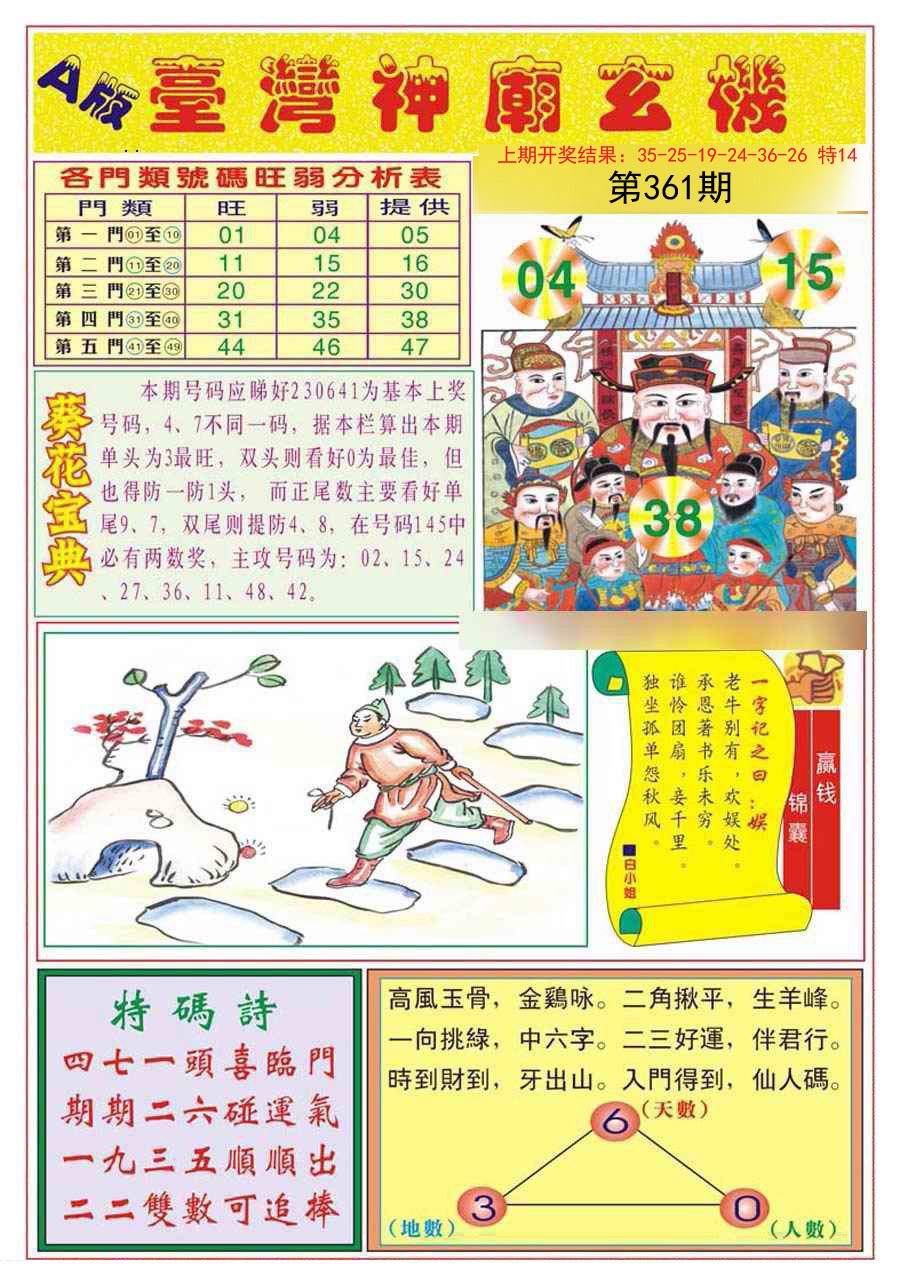 A版 臺灣神廟玄機
上期开奖结果：35-25-19-24-36-26 特14
第361期
各門類號碼旺弱分析表
門類 旺 弱 提供
第一門01至10 01 04 05
第二門11至20 11 15 16
第三門21至30 20 22 30
第四門31至40 31 35 38
第五門41至49 44 46 47
04
15
38
葵花宝典
本期号码应睇好230641为基本上奖
号码，4、7不同一码，据本栏算出本期
单头为3最旺，双头则看好0为最佳，但
也得防一防1头， 而正尾数主要看好单
尾9、7，双尾则提防4、8，在号码145中
必有两数奖，主攻号码为：02、15、24
、27、36、11、48、42。
一字记之曰：娱
老牛别有，欢娱处。
承恩著书乐未穷。
谁怜团扇，妾千里。
独坐孤单怨秋风。
■白小姐
赢钱
锦囊
特碼詩
四七一頭喜臨門
期期二六碰運氣
一九三五順順出
二二雙數可追棒
高風玉骨，金鷄咏。二角揪平，生羊峰。
一向挑綠，中六字。二三好運，伴君行。
時到財到，牙出山。入門得到，仙人碼。
6 （天數）
3 （地數）
0 （人數）